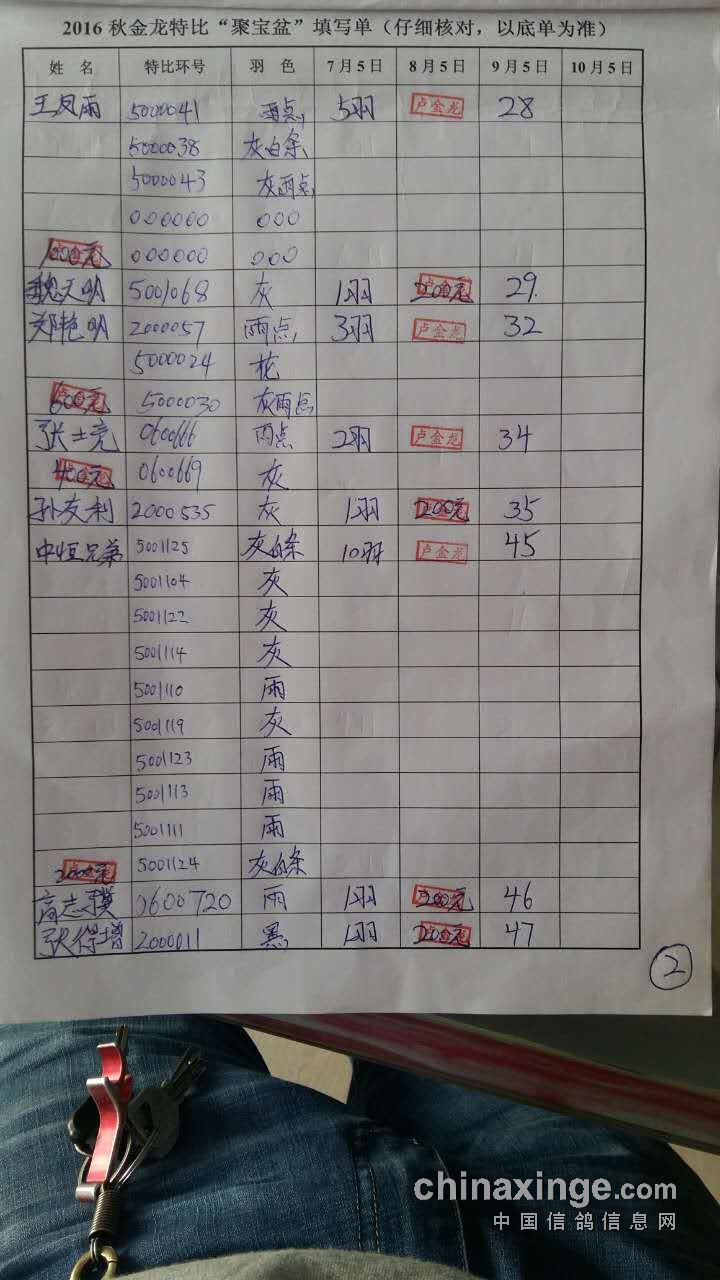 2016秋金龙特比“聚宝盆”填写单（仔细核对，以底单为准）
姓 名 特比环号 羽 色 7月5日 8月5日 9月5日 10月5日
王凤雨 5000041 雨点 5羽 卢金龙 28
5000038 灰白条
5000043 灰雨点
000000 000
1000元 000000 000
魏天明 5001068 灰 1羽 200元 29.
郑艳明 2000057 雨点 3羽 卢金龙 32
5000024 花
600元 5000030 灰雨点
张士亮 0600666 雨点 2羽 卢金龙 34
400元 0600669 灰
孙友利 2000535 灰 1羽 200元 35
中恒兄弟 5001125 灰白条 10羽 卢金龙 45
5001104 灰
5001122 灰
5001114 灰
5001110 雨
5001119 灰
5001123 雨
5001113 雨
5001111 雨
2000元 5001124 灰白条
高志骥 0600720 雨 1羽 200元 46
张得增 2000011 黑 1羽 200元 47
2
chinaxinge.com
中国信鸽信息网